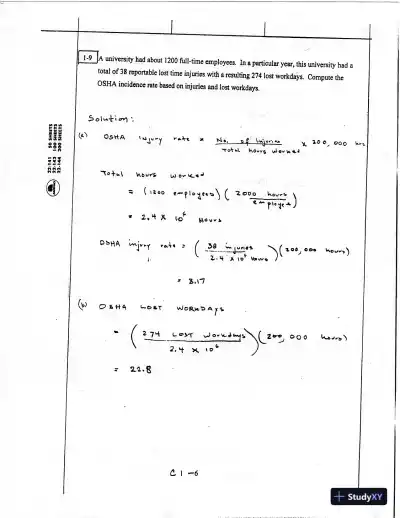 1-9 A university had about 1200 full-time employees. In a particular year, this university had a
total of 38 reportable lost time injuries with a resulting 274 lost workdays. Compute the
OSHA incidence rate based on injuries and lost workdays.
Solution:
(a) OSHA injury rate = No. of Injuries / Total hours worked x 200,000 hrs
Total hours worked
= (1200 employees) (2000 hours / employee)
= 2.4 x 10^6 Hours
OSHA injury rate = (38 injuries / 2.4 x 10^6 Hours) (200,000 hours)
= 3.17
(b) OSHA LOST WORKDAYS
= (274 LOST Workdays / 2.4 x 10^6) (200,000 hours)
= 22.8
C1-6
StudyXY